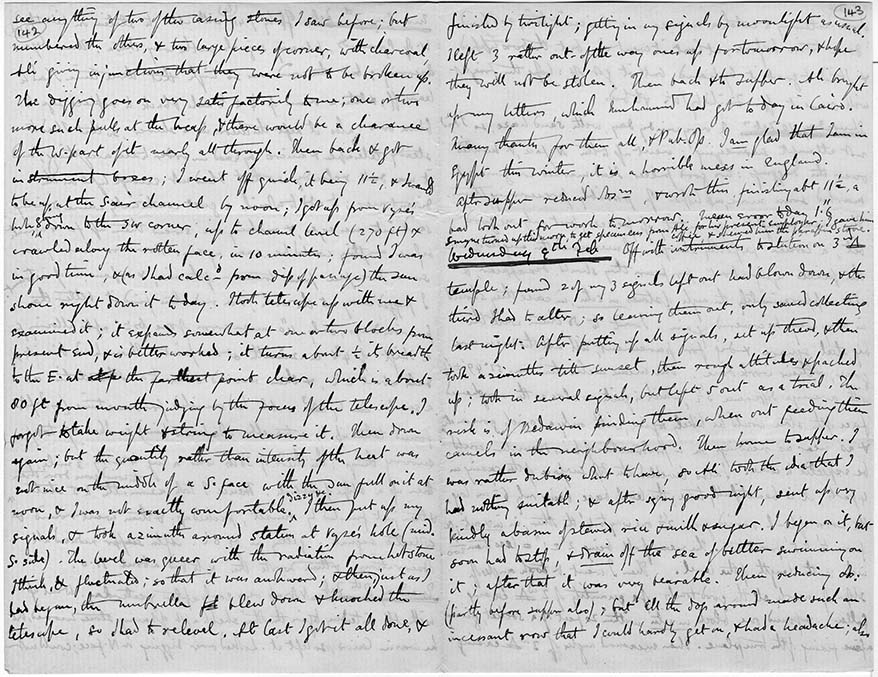 142
see anything of two of the casing stones I saw before; but
numbered the others, & two large pieces of corner, with charcoal,
Ali giving injunctions that they were not to be broken up.
The digging goes on very satisfactorily to me; one or two
more such pulls at the heap, & there would be a clearance
of the W. part of it nearly all through. Then back & got
instrument boxes; I went off quick, it being 11½, & I wanted
to be up at the air channel by noon; I got up from Vyse's
hole down to the SW corner, up to channel level (270 ft) &
crawled along the rotten face, in 10 minutes; found I was
in good time, & (as I had calcd from dip of passage) the sun
shone right down it to day. I took telescope up with me &
examined it; it expands somewhat at one or two blocks from
present end, & is better worked; it turns about ½ its breadth
to the E. at the farthest point clear, which is about
80 ft from mouth judging by the focus of the telescope. I
forgot to take weight & string to measure it. Then down
again; but the quantity rather than intensity of the heat was
not nice on the middle of a So face with the sun full on it at
noon, & I was not exactly comfortable. I then put up my
signals, & took azimuths around station at Vyse's hole (mid.
So side). The level was queer with the radiation from hot stone
I think, & fluctuated; so that it was awkward; & then, just as I
had begun, the umbrella blew down & knocked the
telescope, so I had to relevel. At last I got it all done, &
143
finished by twilight; getting in my signals by moonlight as usual.
I left 3 rather out-of-the way ones up for tomorrow, & hope
they will not be stolen. Then back & to supper. Ali brought
up my letters, which Muhammed had got to day in Cairo.
Many thanks for them all, & Pub. Op. I am glad that I am in
Egypt this winter, it is a horrible mess in England.
After supper reduced obsns & wrote this, finishing abt 11½, a
had look out for work tomorrow. Mean error to day 1".9
Wednesday 9th Feb Off with instruments to station on 3rd
temple; found 2 of my 3 signals left out had blown down, & the
third I had to alter; so leaving them out, only saved collecting
last night. After putting up all signals, set up theod, & then
took azimuths till sunset, then rough altitudes & packed
up; took in several signals, but left 5 out as a trial; the
risk is of Bedawin finding them, when out feeding their
camels in the neighbourhood. Then home to supper. I
was rather dubious what to have, so Ali took the idea that I
had nothing suitable; & after saying good night, sent up very
kindly a basin of stewed rice & milk & sugar. I began on it, but
soon had to stop, & drain off the sea of butter swimming on
it; after that it was very bearable. Then reducing obs.
(partly before supper also); but all the dogs around made such an
incessant row that I could hardly get on, & had a headache; also